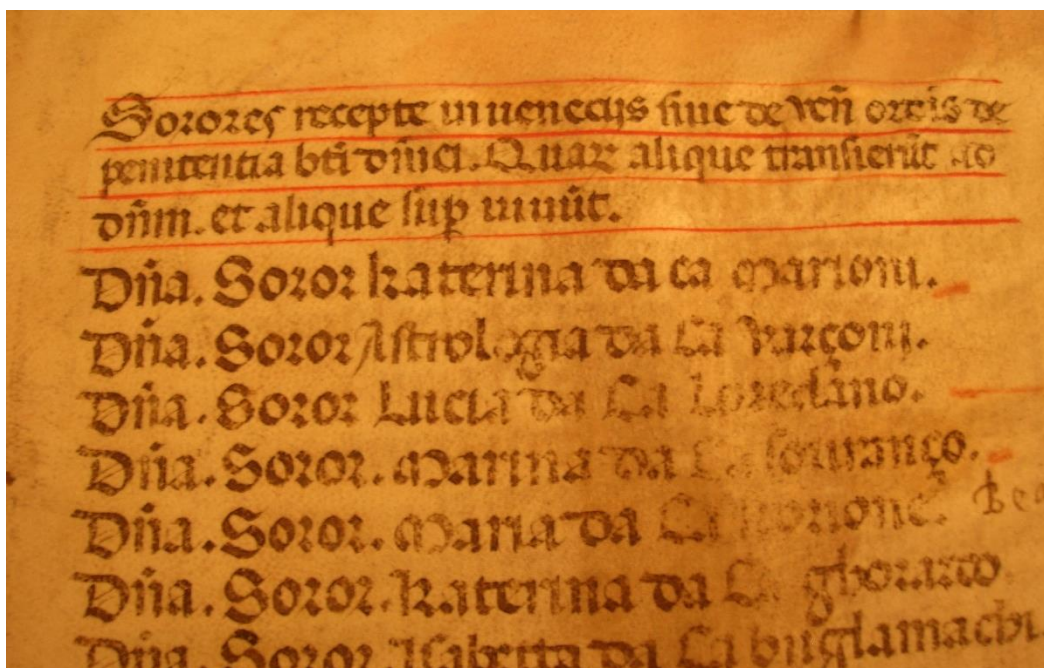 Sorores recepte in uenecijs siue de ven̄ ordīs de
penitentia bt̄i dn̄ici. Quaꝝ alique transierūt ad
dn̄m. et alique suꝑ uiuūt.
Dn̄a. Soror katerina da ca marioni.
Dn̄a. Soror Astrologia da Ca
Dn̄a. Soror Lucia da Ca Loredano.
Dn̄a. Soror. Marina da Ca souranço.
Dn̄a. Soror. Maria da Ca
Dn̄a. Soror. Katerina da Ca ghorardo.
Dn̄a. Soror. Isabetta da Ca buglamachi.